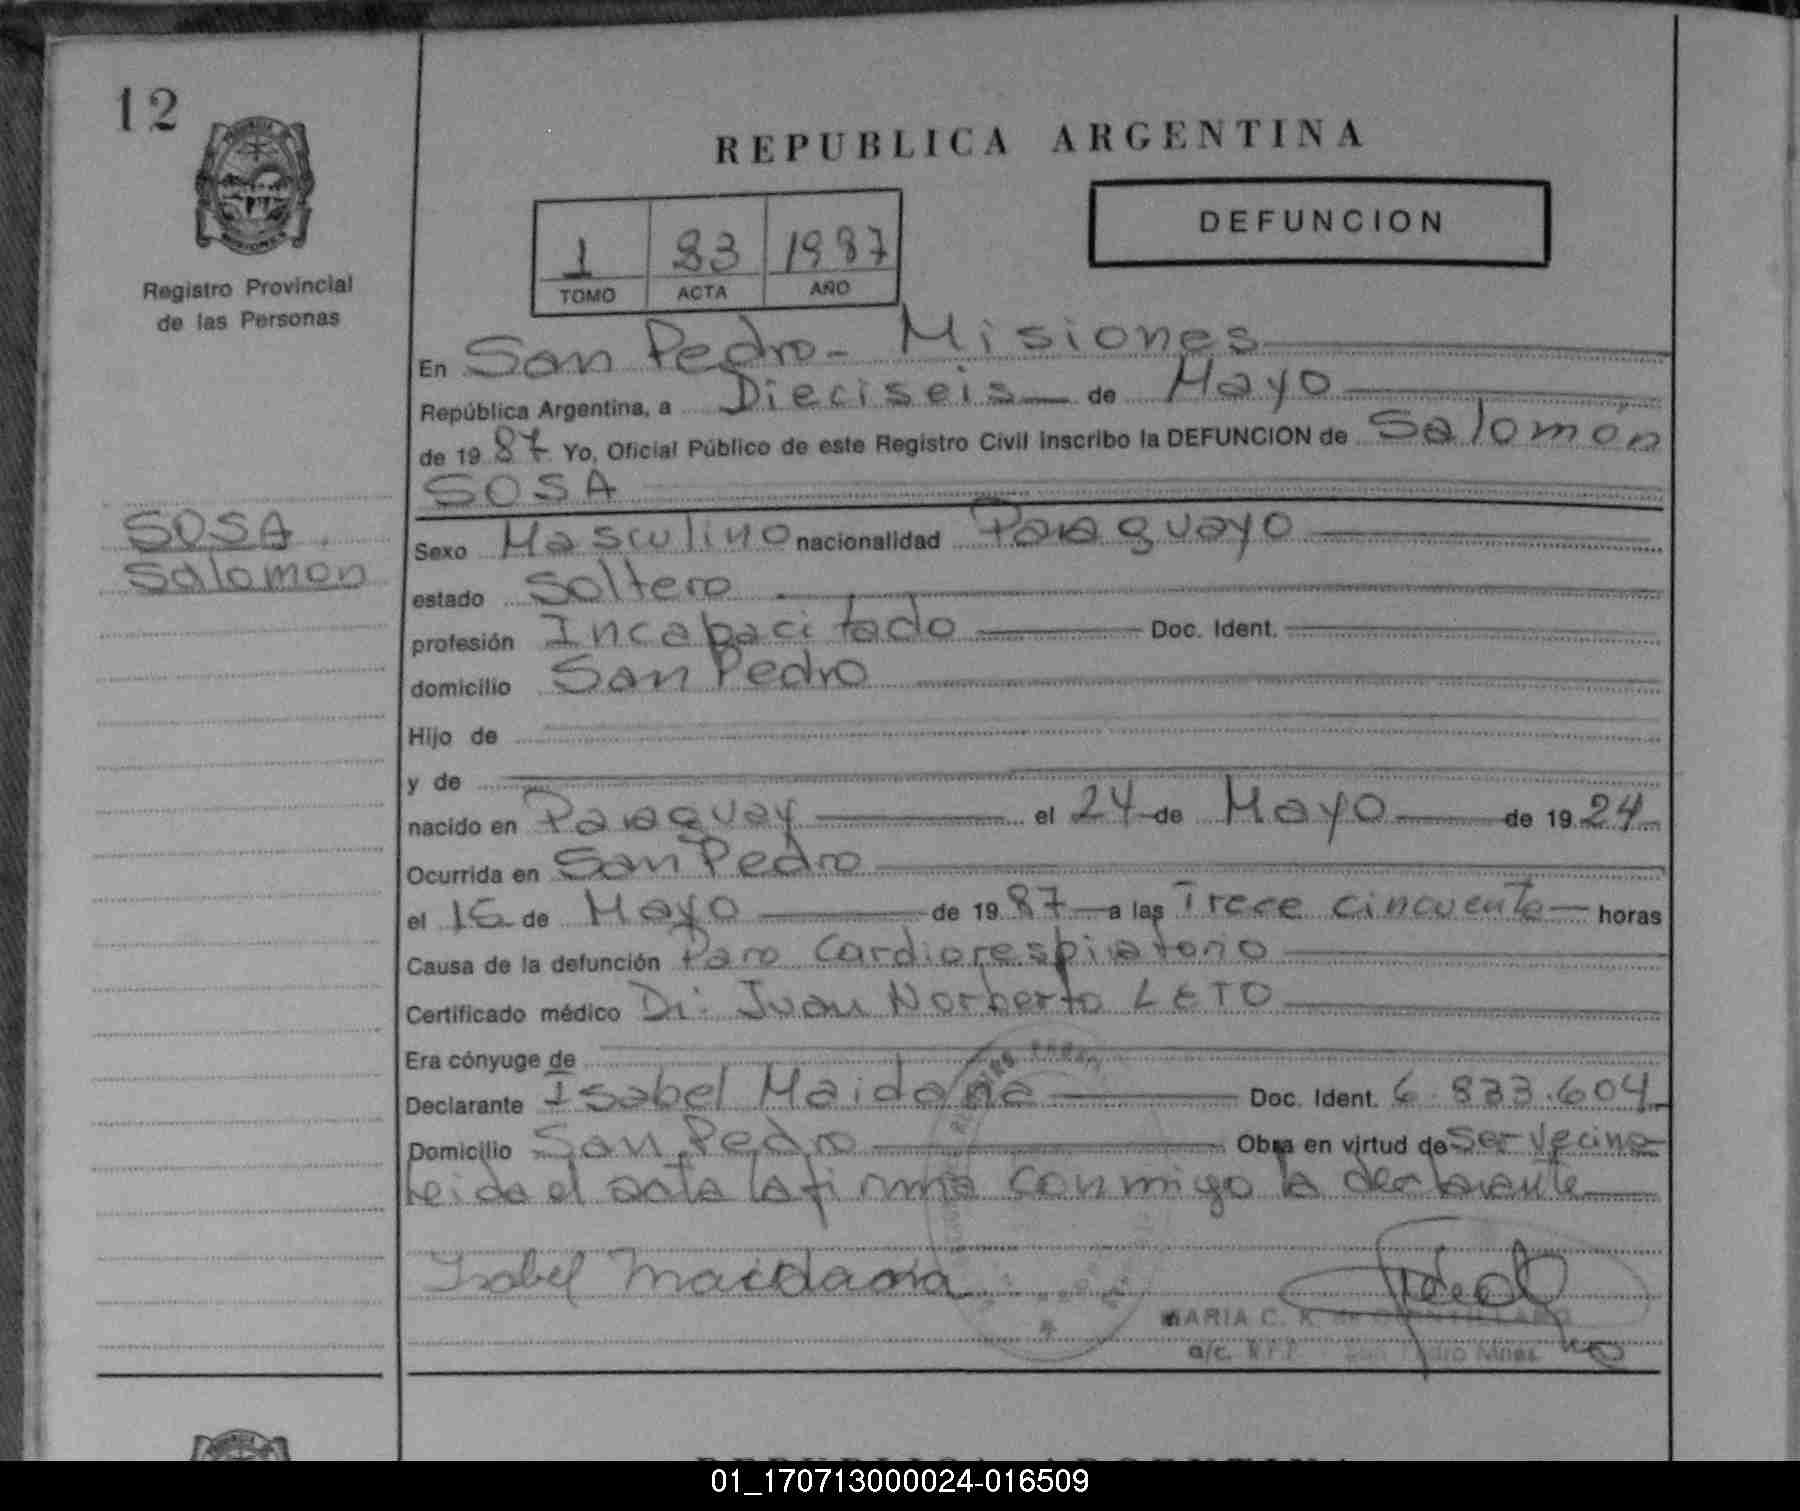 12
REPUBLICA ARGENTINA
DEFUNCION
1 83 1987
TOMO ACTA AÑO
Registro Provincial
de las Personas
En San Pedro - Misiones
República Argentina, a Dieciseis de Mayo
de 19 87 Yo, Oficial Público de este Registro Civil inscribo la DEFUNCION de Salomón
SOSA
SOSA
Salomon
Sexo Masculino nacionalidad Paraguayo
estado Soltero
profesión Incapacitado Doc. Ident.
domicilio San Pedro
Hijo de
y de
nacido en Paraguay el 24 de Mayo de 19 24
Ocurrida en San Pedro
el 16 de Mayo de 19 87 a las Trece cincuenta horas
Causa de la defunción Paro Cardiorespiratorio
Certificado médico Dr: Juan Norberto LETO
Era cónyuge de
Declarante Isabel Maidana Doc. Ident. 6.833.604
Domicilio San Pedro Obra en virtud de Ser Vecina
Leida el acta la firma conmigo la declarante
Isabel Maidana
MARIA C. K. de
a/c. R.P.P. San Pedro Mnes.
01_170713000024-016509